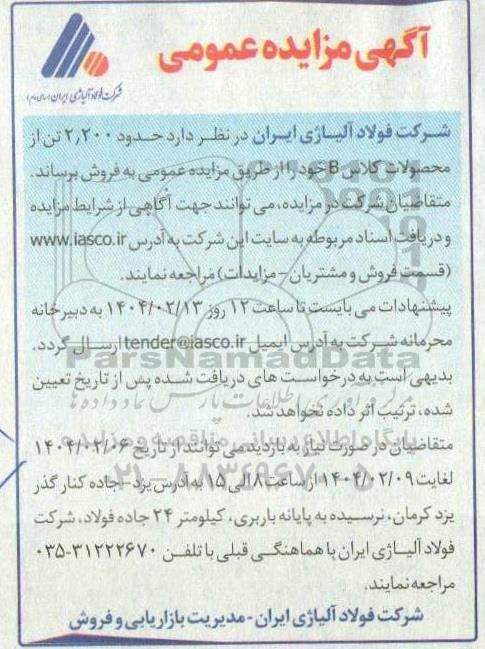 آگهی مزایده عمومی
شرکت فولاد آلیاژی ایران (سهامی عام)
شرکت فولاد آلیاژی ایران در نظر دارد حدود ۲٫۲۰۰ تن از
محصولات کلاس B خود را از طریق مزایده عمومی به فروش برساند.
متقاضیان شرکت در مزایده، می توانند جهت آگاهی از شرایط مزایده
و دریافت اسناد مربوطه به سایت این شرکت به آدرس www.iasco.ir
(قسمت فروش و مشتریان - مزایدات) مراجعه نمایند.
پیشنهادات می بایست تا ساعت ۱۲ روز ۱۴۰۴/۰۲/۱۳ به دبیرخانه
محرمانه شرکت به آدرس ایمیل tender@iasco.ir ارسال گردد.
ParsNamadData
بدیهی است به درخواست های دریافت شده پس از تاریخ تعیین
شده، ترتیب اثر داده نخواهد شد.
متقاضیان در صورت نیاز به بازدید می توانند از تاریخ ۱۴۰۴/۰۲/۰۶
لغایت ۱۴۰۴/۰۲/۰۹ از ساعت ۸ الی ۱۵ به آدرس یزد - جاده کنار گذر
یزد کرمان، نرسیده به پایانه باربری، کیلومتر ۲۴ جاده فولاد، شرکت
فولاد آلیاژی ایران با هماهنگی قبلی با تلفن ۳۱۲۲۲۶۷۰-۰۳۵
مراجعه نمایند.
شرکت فولاد آلیاژی ایران - مدیریت بازاریابی و فروش